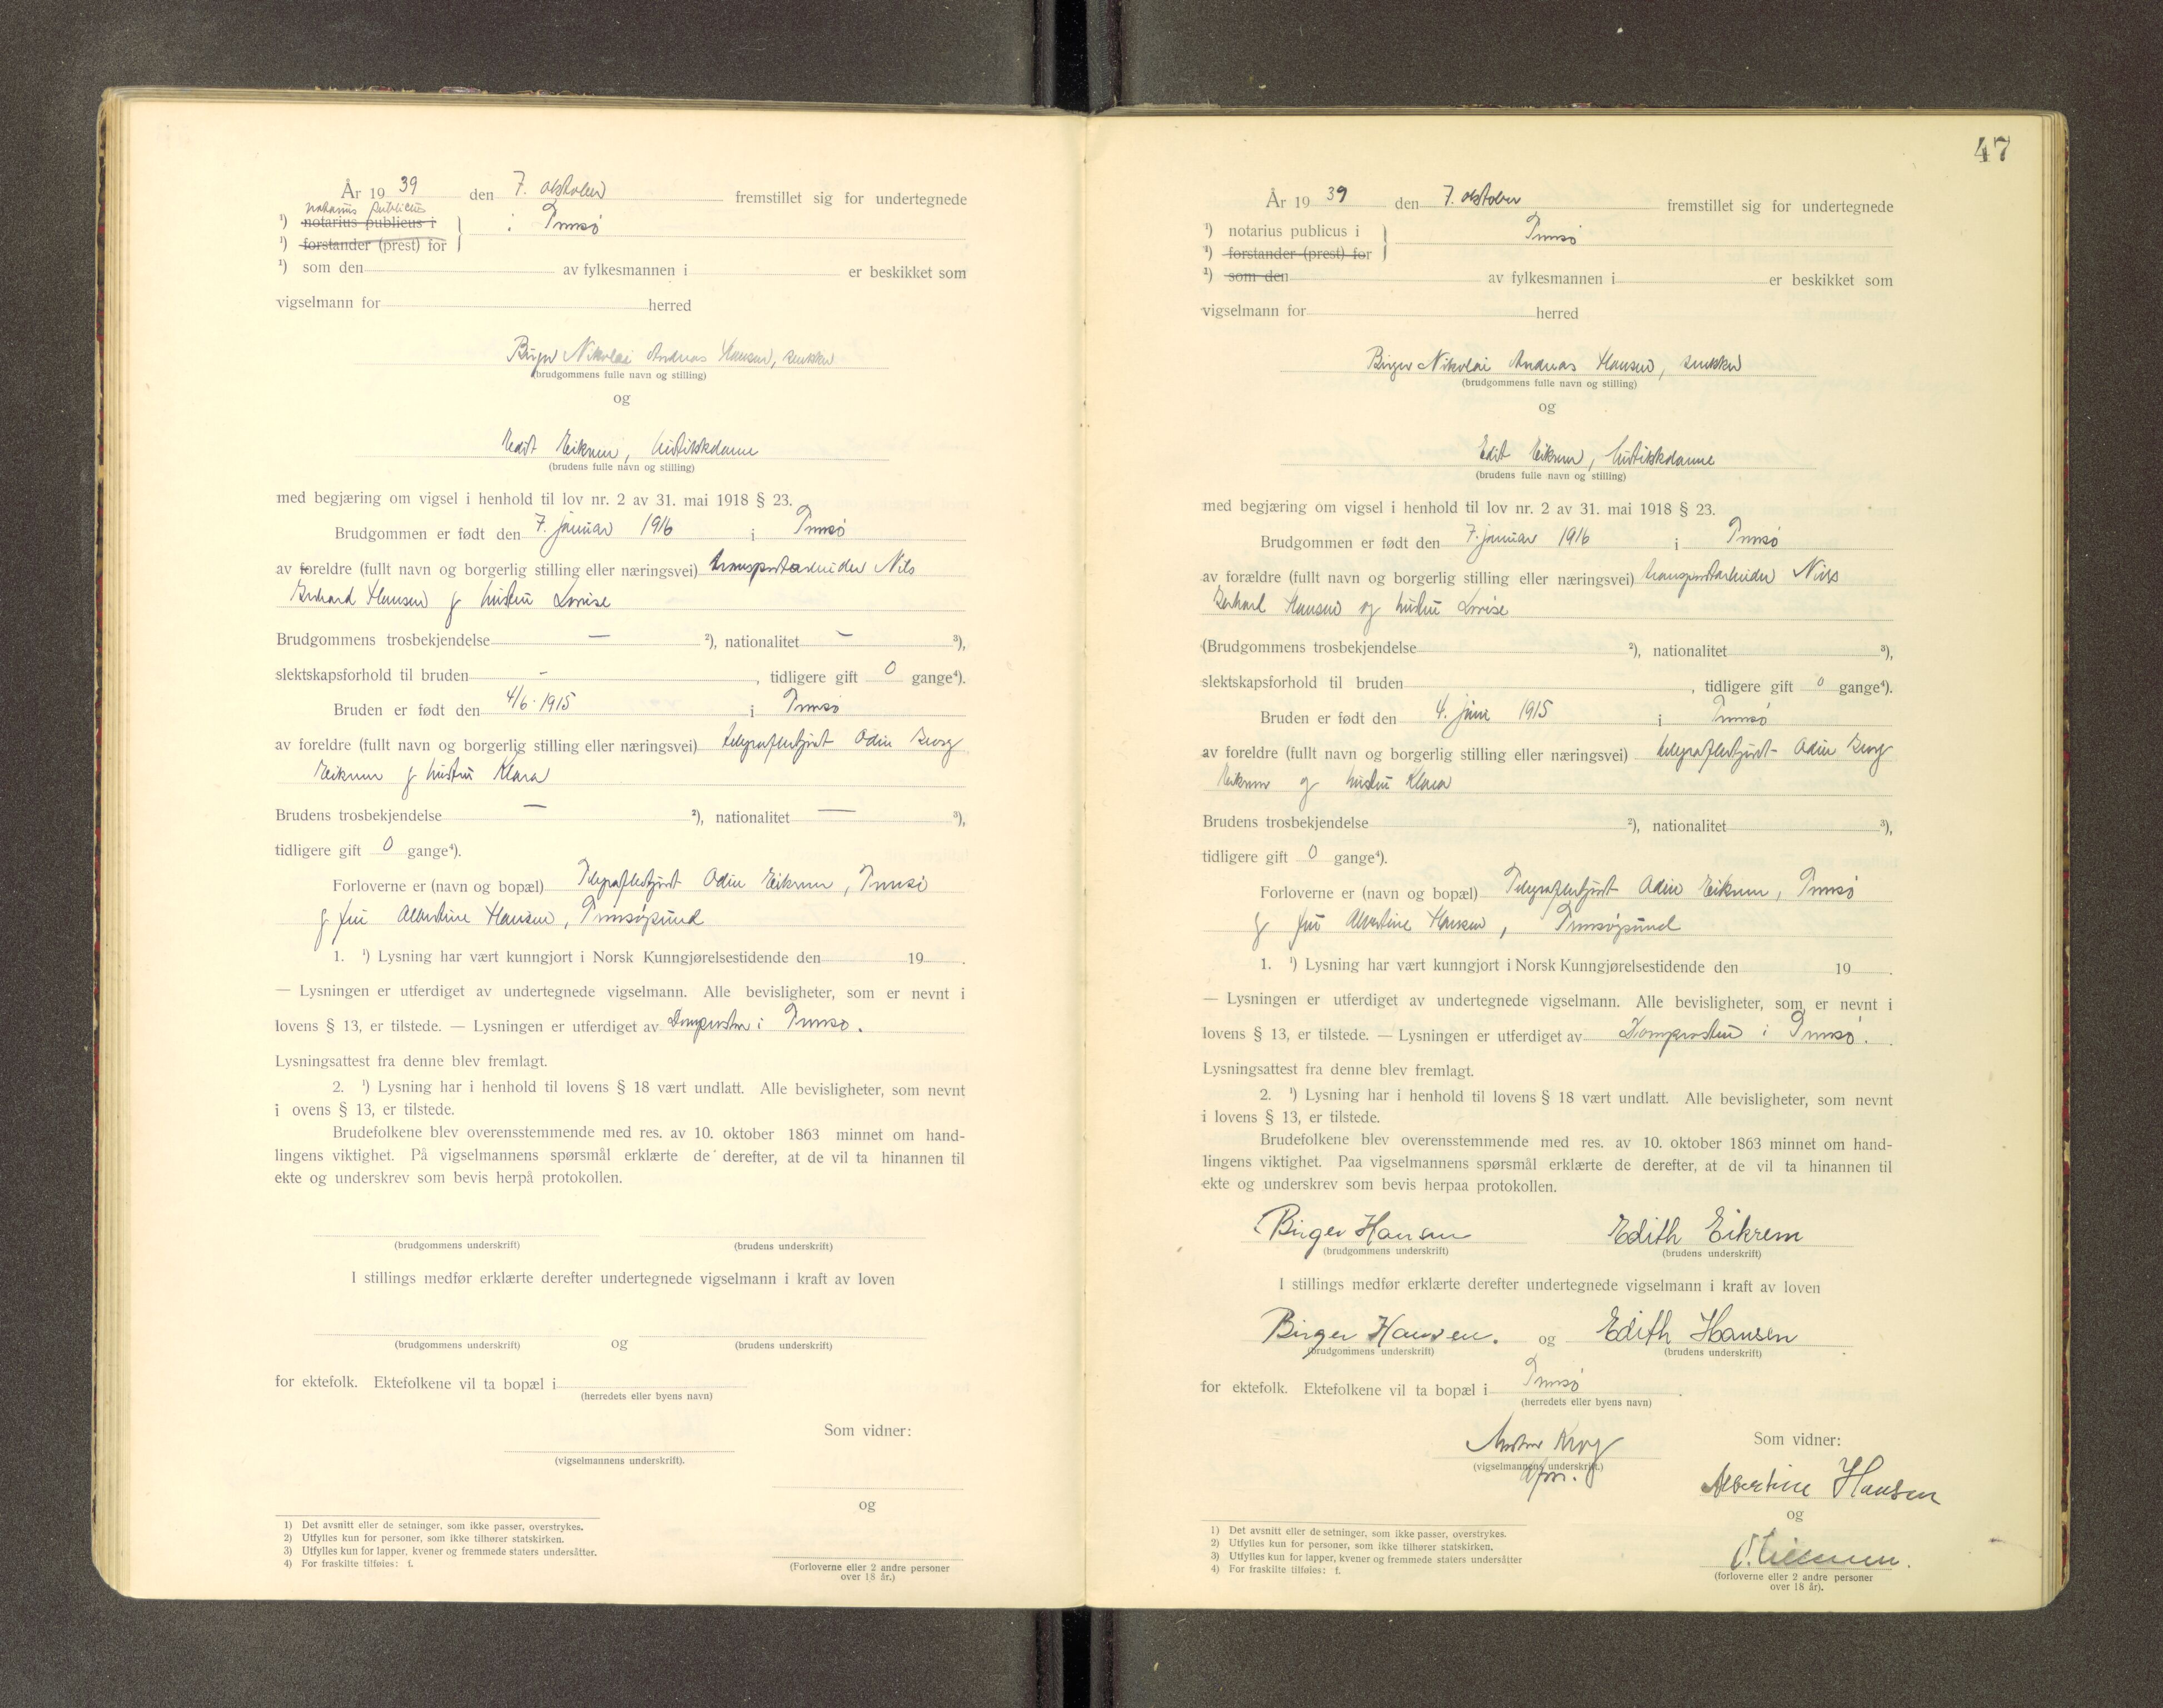 År 19 39 den 7. oktober fremstillet sig for undertegnede
notarius publicus
¹) notarius publicus i
i Tromsø
¹) forstander (prest) for
¹) som den av fylkesmannen i er beskikket som
vigselmann for herred
Birger Nikolai Andreas Hansen,
(brudgommens fulle navn og stilling)
og
Edit Eikrem, butikkdame
(brudens fulle navn og stilling)
med begjæring om vigsel i henhold til lov nr. 2 av 31. mai 1918 § 23.
Brudgommen er født den 7. januar 1916 i Tromsø
av foreldre (fullt navn og borgerlig stilling eller næringsvei) transportarbeider Nils
Gerhard Hansen og hustru Lovise
Brudgommens trosbekjendelse — ²), nationalitet — ³),
slektskapsforhold til bruden - , tidligere gift 0 gange⁴).
Bruden er født den 4/6 1915 i Tromsø
av foreldre (fullt navn og borgerlig stilling eller næringsvei) telegrafbetjent Odin Georg
Eikrem og hustru Klara
Brudens trosbekjendelse — ²), nationalitet — ³),
tidligere gift 0 gange⁴).
Forloverne er (navn og bopæl) Telegrafbetjent Odin Eikrem, Tromsø
og fru Albertine Hansen, Tromsøysund
1. ¹) Lysning har vært kunngjort i Norsk Kunngjørelsestidende den 19 .
— Lysningen er utferdiget av undertegnede vigselmann. Alle bevisligheter, som er nevnt i
lovens § 13, er tilstede. — Lysningen er utferdiget av Domprosten i Tromsø.
Lysningsattest fra denne blev fremlagt.
2. ¹) Lysning har i henhold til lovens § 18 vært undlatt. Alle bevisligheter, som nevnt
i ovens § 13, er tilstede.
Brudefolkene blev overensstemmende med res. av 10. oktober 1863 minnet om hand-
lingens viktighet. På vigselmannens spørsmål erklærte de derefter, at de vil ta hinannen til
ekte og underskrev som bevis herpå protokollen.
(brudgommens underskrift) (brudens underskrift)
I stillings medfør erklærte derefter undertegnede vigselmann i kraft av loven
og
(brudgommens underskrift) (brudens underskrift)
for ektefolk. Ektefolkene vil ta bopæl i
(herredets eller byens navn)
Som vidner:
(vigselmannens underskrift).
og
1) Det avsnitt eller de setninger, som ikke passer, overstrykes.
2) Utfylles kun for personer, som ikke tilhører statskirken.
3) Utfylles kun for lapper, kvener og fremmede staters undersåtter.
4) For fraskilte tilføies: f.
(Forloverne eller 2 andre personer
over 18 år.)
47
År 19 39 den 7. oktober fremstillet sig for undertegnede
¹) notarius publicus i
Tromsø
¹) forstander (prest) for
¹) som den av fylkesmannen i er beskikket som
vigselmann for herred
Birger Nikolai Andreas Hansen,
(brudgommens fulle navn og stilling)
og
Edit Eikrem, butikkdame
(brudens fulle navn og stilling)
med begjæring om vigsel i henhold til lov nr. 2 av 31. mai 1918 § 23.
Brudgommen er født den 7. januar 1916 i Tromsø
av forældre (fullt navn og borgerlig stilling eller næringsvei) transportarbeider Nils
Gerhard Hansen og hustru Lovise
(Brudgommens trosbekjendelse ²), nationalitet ³),
slektskapsforhold til bruden , tidligere gift 0 gange⁴).
Bruden er født den 4. juni 1915 i Tromsø
av foreldre (fullt navn og borgerlig stilling eller næringsvei) telegrafbetjent Odin Georg
Eikrem og hustru Klara
Brudens trosbekjendelse ²), nationalitet ³),
tidligere gift 0 gange⁴).
Forloverne er (navn og bopæl) Telegrafbetjent Odin Eikrem, Tromsø
og fru Albertine Hansen, Tromsøysund
1. ¹) Lysning har vært kunngjort i Norsk Kunngjørelsestidende den 19 .
— Lysningen er utferdiget av undertegnede vigselmann. Alle bevisligheter, som er nevnt i
lovens § 13, er tilstede. — Lysningen er utferdiget av Domprosten i Tromsø.
Lysningsattest fra denne blev fremlagt.
2. ¹) Lysning har i henhold til lovens § 18 vært undlatt. Alle bevisligheter, som nevnt
i lovens § 13, er tilstede.
Brudefolkene blev overensstemmende med res. av 10. oktober 1863 minnet om hand-
lingens viktighet. Paa vigselmannens spørsmål erklærte de derefter, at de vil ta hinannen til
ekte og underskrev som bevis herpaa protokollen.
Birger Hansen Edith Eikrem
(brudgommens underskrift) (brudens underskrift)
I stillings medfør erklærte derefter undertegnede vigselmann i kraft av loven
Birger Hansen. og Edith Hansen
(brudgommens underskrift) (brudens underskrift)
for ektefolk. Ektefolkene vil ta bopæl i Tromsø
(herredets eller byens navn)
Krog
Som vidner:
(vigselmannens underskrift.)
Albertine Hansen
og
O. Eikrem.
1) Det avsnitt eller de setninger, som ikke passer, overstrykes.
2) Utfylles kun for personer, som ikke tilhører statskirken.
3) Utfylles kun for lapper, kvener og fremmede staters undersåtter
4) For fraskilte tilføies: f.
(forloverne eller 2 andre personer
over 18 år).